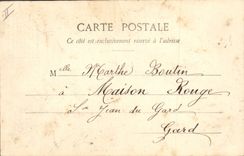 CARTE POSTALE
Ce côté est exclusivement réservé à l'adresse
Mlle Marthe Boutin
à Maison Rouge
St Jean du Gard
Gard